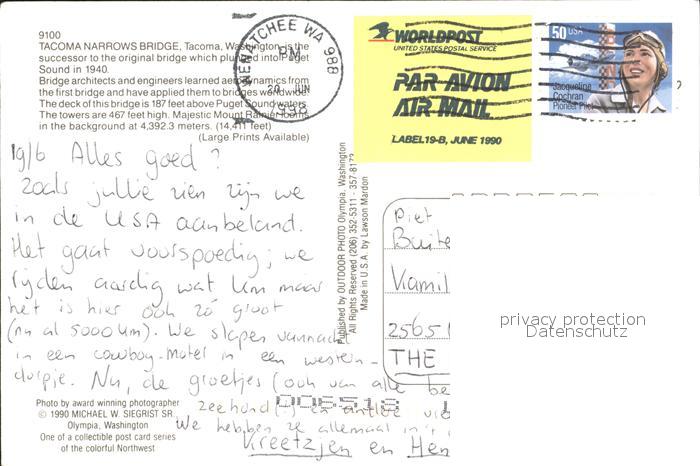 9100
TACOMA NARROWS BRIDGE, Tacoma, Washington, is the
successor to the original bridge which plunged into Puget
Sound in 1940.
Bridge architects and engineers learned aerodynamics from
the first bridge and have applied them to bridges worldwide.
The deck of this bridge is 187 feet above Puget Sound waters.
The towers are 467 feet high. Majestic Mount Rainier looms
in the background at 4,392.3 meters. (14,411 feet)
(Large Prints Available)
WENATCHEE WA 988
PM
20 JUN
1998
WORLDPOST
UNITED STATES POSTAL SERVICE
PAR AVION
AIR MAIL
LABEL 19-B, JUNE 1990
50 USA
Jacqueline
Cochran
Pioneer Pilot
19/6 Alles goed?
Zoals jullie zien zijn we
in de USA aanbeland.
Het gaat voorspoedig; we
rijden aardig wat km maar
het is hier ook zó groot
(nu al 5000 km). We slapen vannacht
in een cowboy-motel in een western-
dorpje. Nu, de groetjes (ook van alle be
zeehond
We hebben ze allemaal in 't
Kreetzjen en Hen
Photo by award winning photographer
© 1990 MICHAEL W. SIEGRIST SR.
Olympia, Washington
One of a collectible post card series
of the colorful Northwest
Published by OUTDOOR PHOTO Olympia, Washington
All Rights Reserved (206) 352-5311 · 357-8172
Made in U.S.A. by Lawson Mardon
Piet
Buite
Vamil
2565
THE
privacy protection
Datenschutz